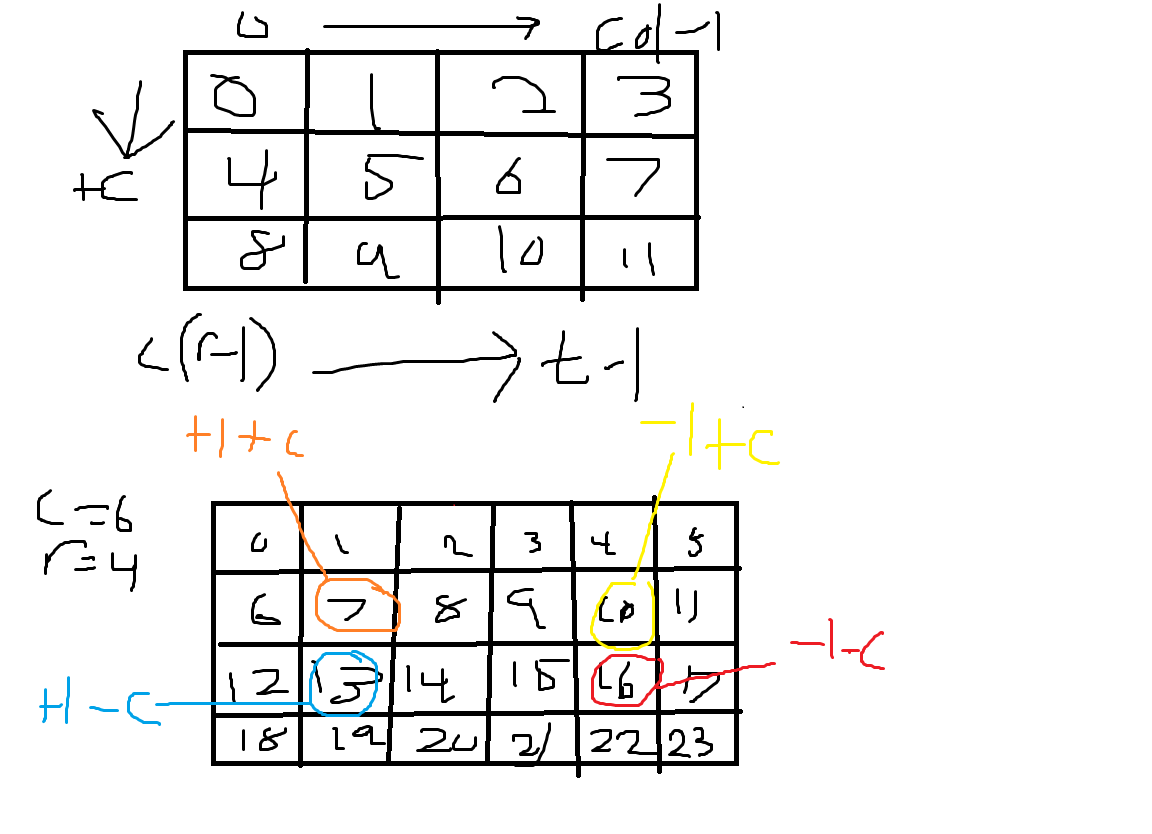 0 → col-1
0 1 2 3
+c
4 5 6 7
8 9 10 11
c(r-1) → t-1
+1+c
-1+c
c=6
r=4
0 1 2 3 4 5
6 7 8 9 10 11
-1-c
12 13 14 15 16 17
+1-c
18 19 20 21 22 23